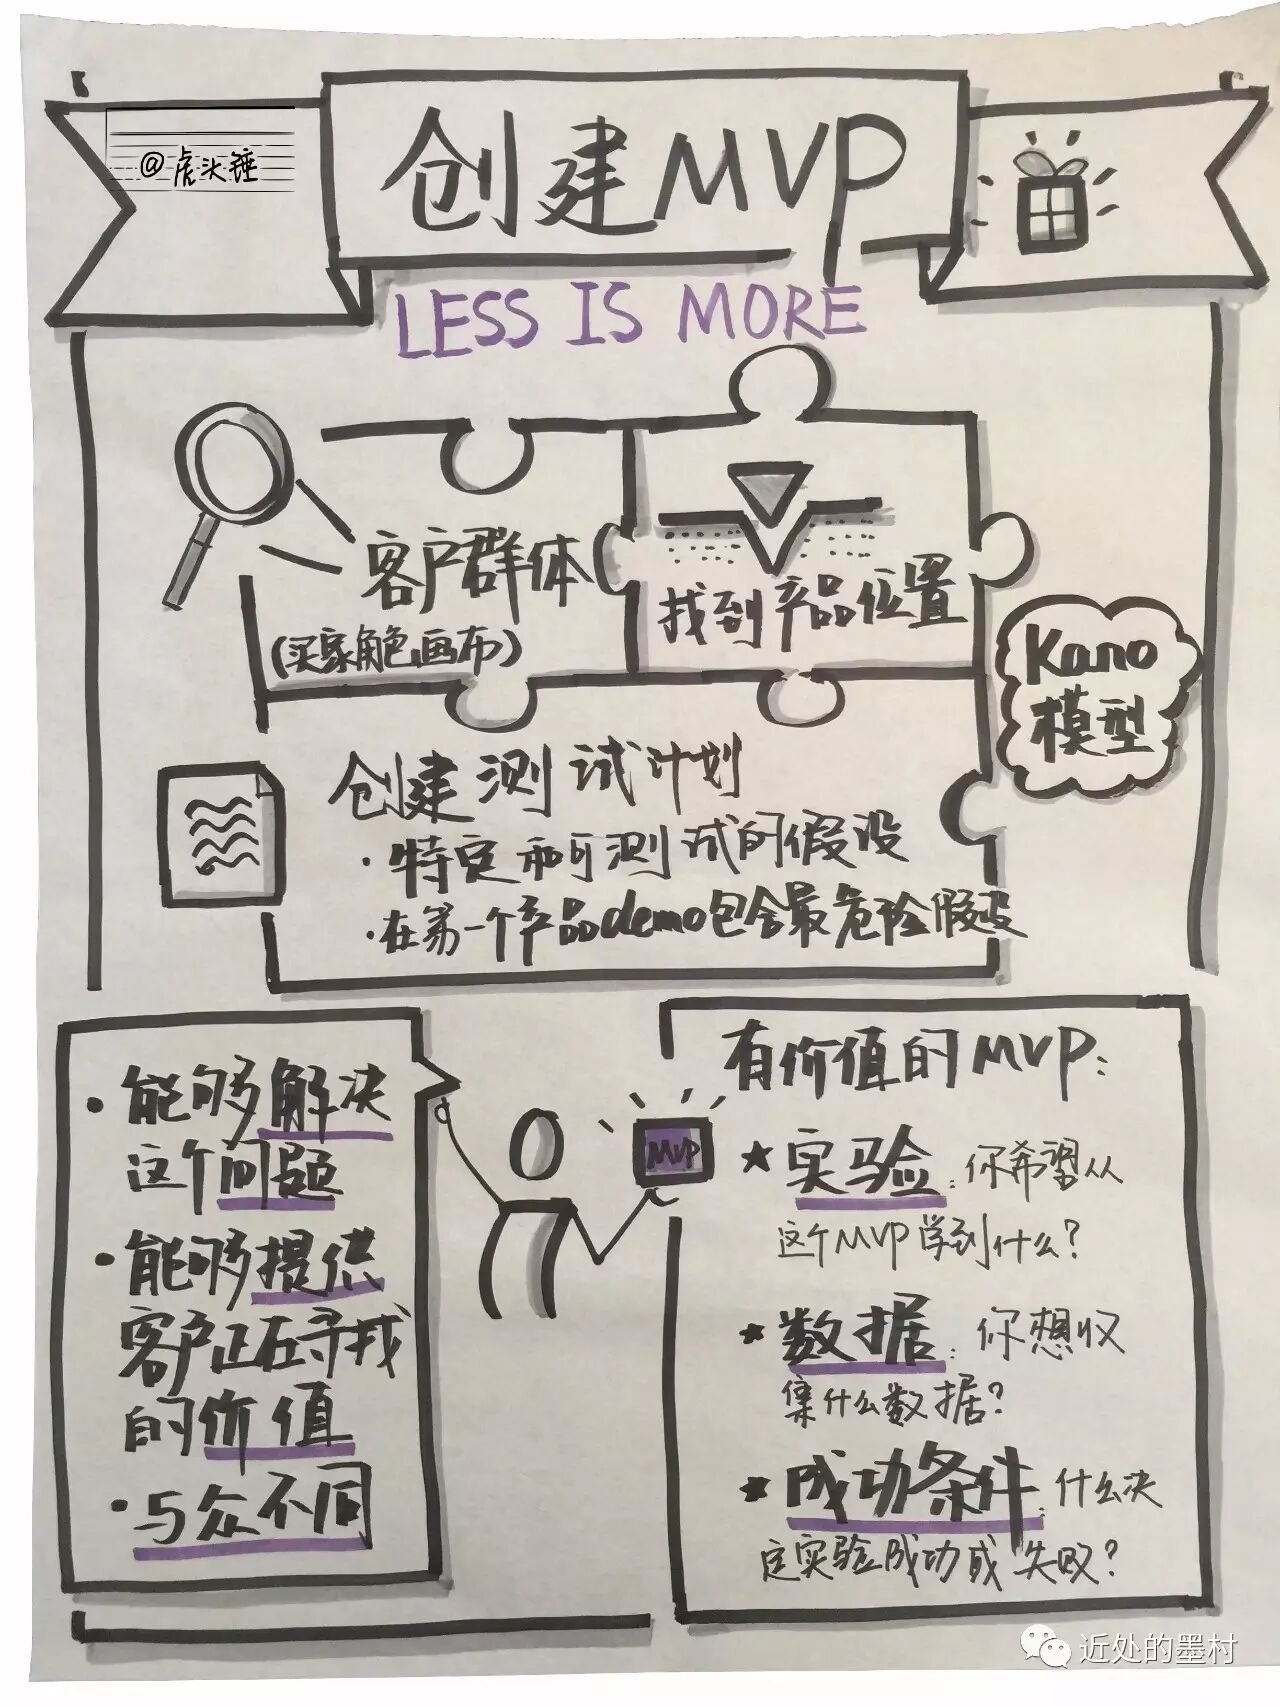 @虎头锤
创建MVP
LESS IS MORE
客户群体
(买家角色画布)
找到产品位置
Kano
模型
创建测试计划
·特定和可测试的假设
·在第一个产品demo包含最危险假设
·能够解决
这个问题
·能够提供
客户正在寻找
的价值
·与众不同
MVP
有价值的MVP:
★实验:你希望从
这个MVP学到什么?
★数据:你想收
集什么数据?
★成功条件:什么决
定实验成功或失败?
近处的墨村